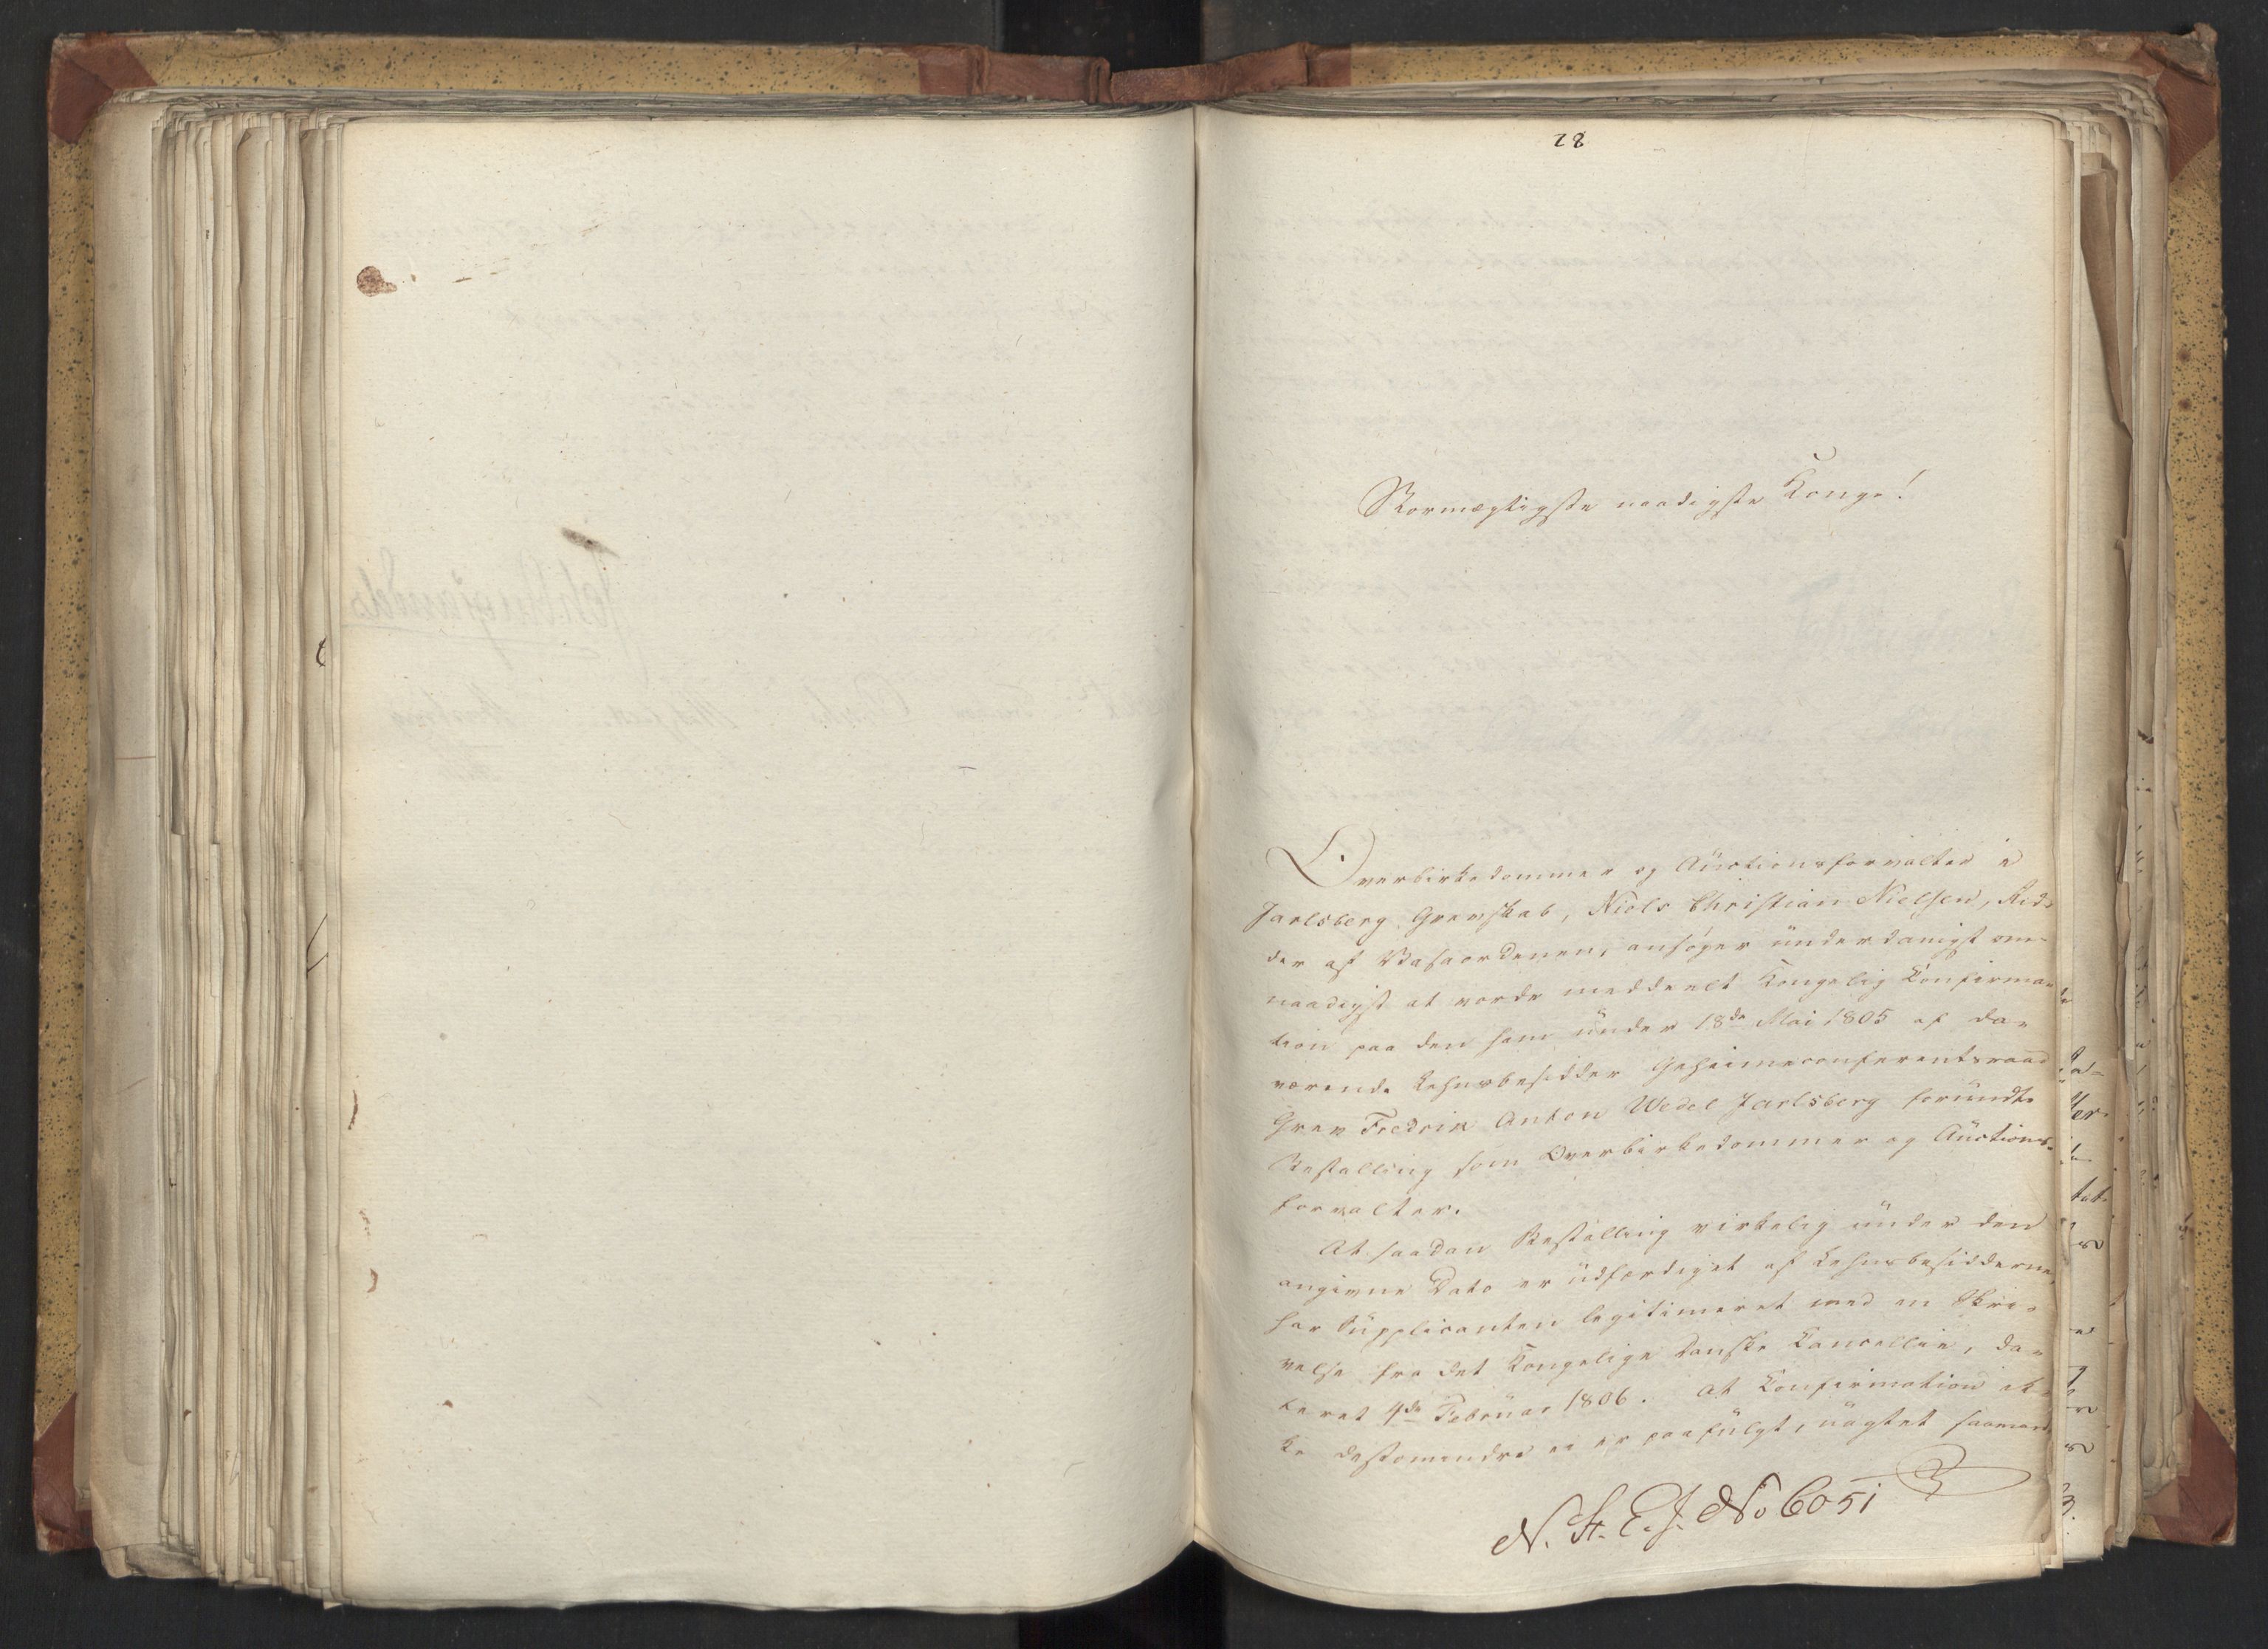 28
Stormægtigste naadigste Konge!
Overbirkedommer og Auctionsforvalter i
Jarlsberg Grevskab, Niels Christian Nielsen, Rid-
der af Vasaordenen, ansøger ünderdanigst om
naadigst at vorde meddeelt Kongelig Confirma-
tion paa den ham ünder 18de Mai 1805 af da-
værende Lehnsbesidder Geheimeconferentsraad
Grev Fredrik Anton Wedel Jarlsberg foründte
Bestalling som Overbirkedommer og Auctions-
forvalter.
At saadan Bestalling virkelig ünder den
angivne Dato er üdfærdiget af Lehnsbesidderne,
har Supplicanten legitimeret med en Skri-
velse fra det Kongelige Danske Cancellie, da-
teret 4de Februar 1806. At Confirmation ik-
ke destomindre ei er paafülgt, üagtet
N. St. E. J. No 6051